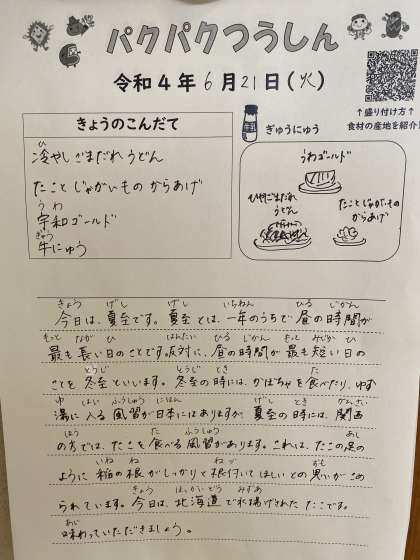 パクパクつうしん
令和4年6月21日(火)
↑盛り付け方↑
食材の産地を紹介!
きょうのこんだて
冷やしごまだれうどん
たことじゃがいものからあげ
宇和ゴールド
牛にゅう
ぎゅうにゅう
うわゴールド
ひやしごまだれ
うどん
たことじゃがいもの
からあげ
今日は、夏至です。夏至とは、一年のうちで昼の時間が
最も長い日のことです。反対に、昼の時間が最も短い日の
ことを冬至といいます。冬至の時には、かぼちゃを食べたり、ゆず
湯に入る風習が日本にはありますが、夏至の時には、関西
の方では、たこを食べる風習があります。これは、たこの足の
ように稲の根がしっかりと根付いてほしいとの思いがこめ
られています。今日は、北海道で水揚げされたたこです。
味わっていただきましょう。